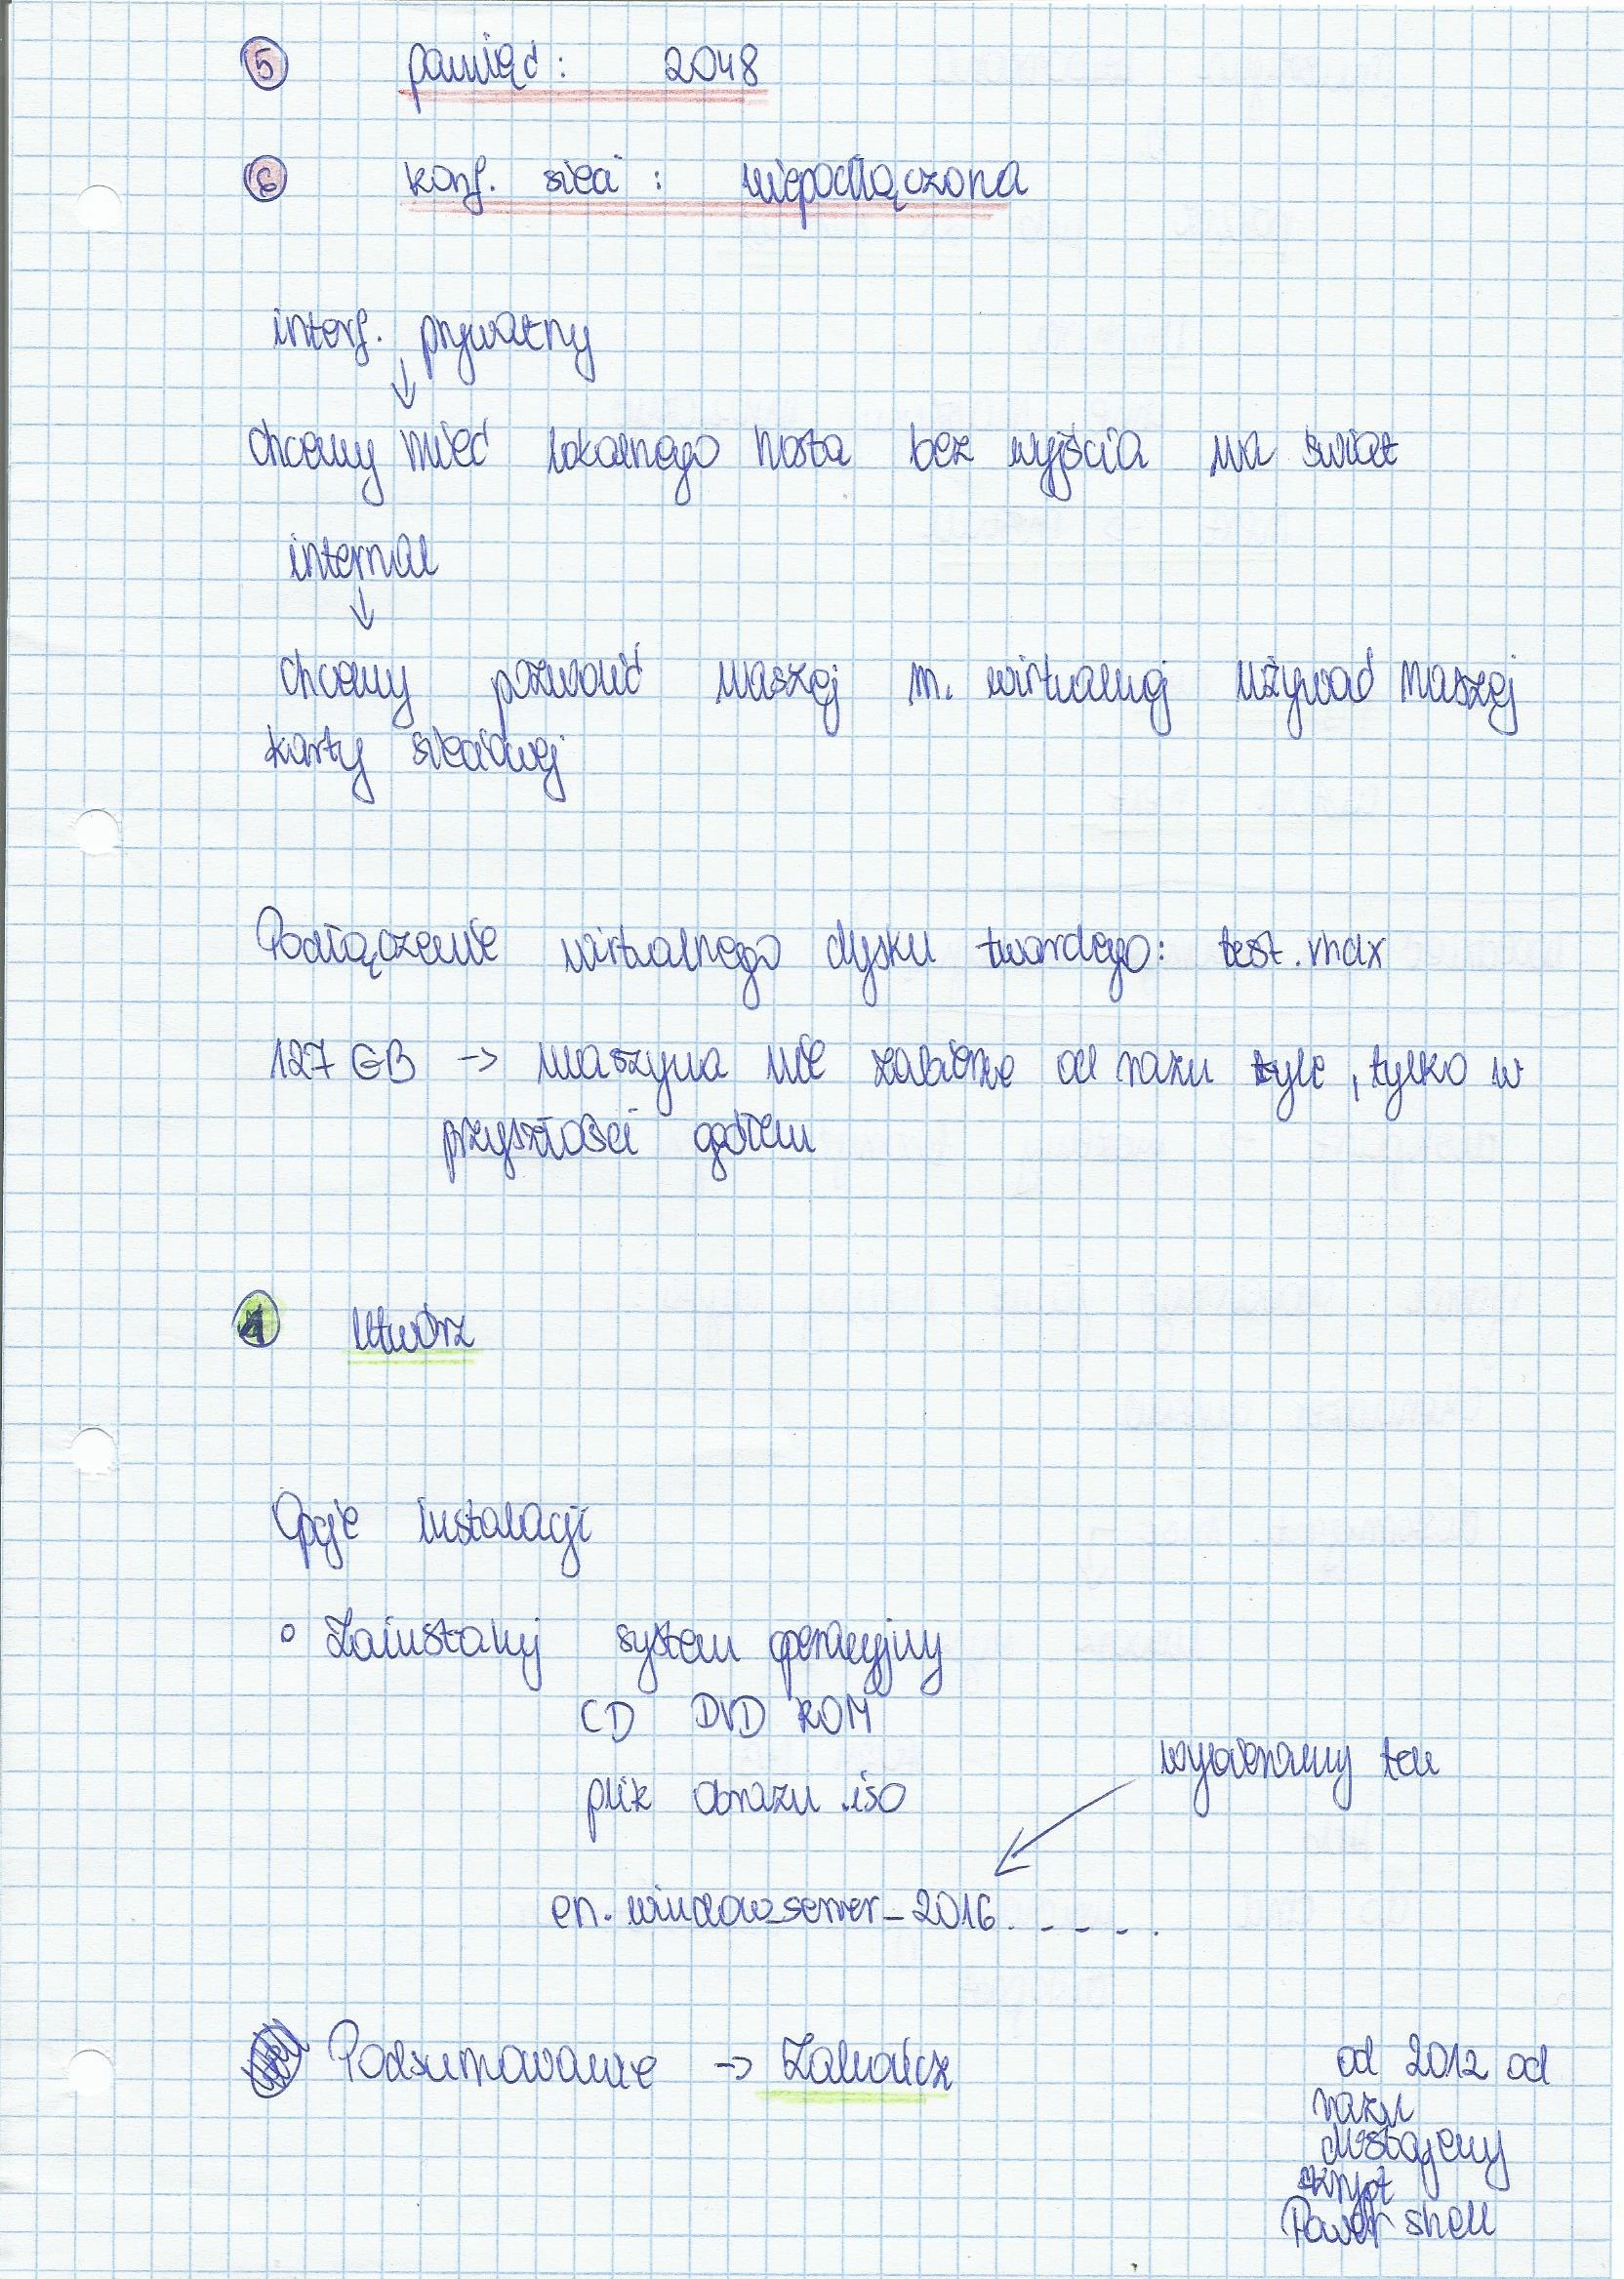 5 pamięć: 2048
6 konf. sieci: niepodłączona
interf. prywatny
↓
chcemy mieć lokalnego hosta bez wyjścia na świat
internal
↓
chcemy pozwolić naszej m. wirtualnej używać naszej
karty sieciowej
Podłączenie wirtualnego dysku twardego: test.vhdx
127 GB -> maszyna nie zabierze od razu tyle, tylko w
przyszłości
1 Utwórz
Opcje instalacji
o Zainstaluj system operacyjny
CD DVD ROM
plik obrazu .iso
wybieramy ten
en. window_server_2016. _ _ _ _ .
Podsumowanie -> Zakończ
od 2012 od
razu
dostajemy
skrypt
Power shell